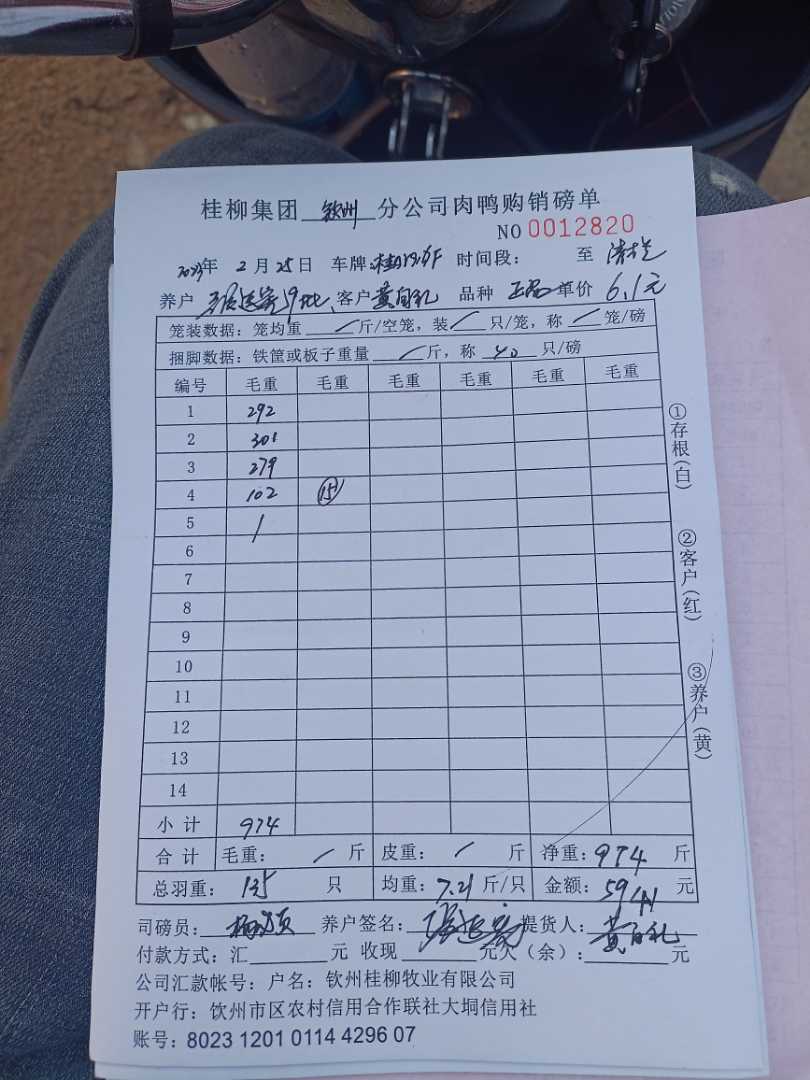 桂柳集团 钦州 分公司肉鸭购销磅单
NO 0012820
2023年 2 月 25 日 车牌: 时间段: 至
养户 9批 客户 黄自礼 品种 正品 单价 6.1元
笼装数据: 笼均重 / 斤/空笼, 装 / 只/笼, 称 / 笼/磅
捆脚数据: 铁筐或板子重量 / 斤, 称 40 只/磅
编号 毛重 毛重 毛重 毛重 毛重 毛重
1 292
2 301
3 279
4 102 (15)
5 /
6
7
8
9
10
11
12
13
14
小 计 974
合 计 毛重: / 斤 皮重: / 斤 净重: 974 斤
总羽重: 135 只 均重: 7.21 斤/只 金额: 5941 元
①存根(白)
②客户(红)
③养户(黄)
司磅员: 养户签名: 提货人: 黄自礼
付款方式: 汇 元 收现 元欠(余): 元
公司汇款帐号: 户名: 钦州桂柳牧业有限公司
开户行: 钦州市区农村信用合作联社大垌信用社
账号: 8023 1201 0114 4296 07